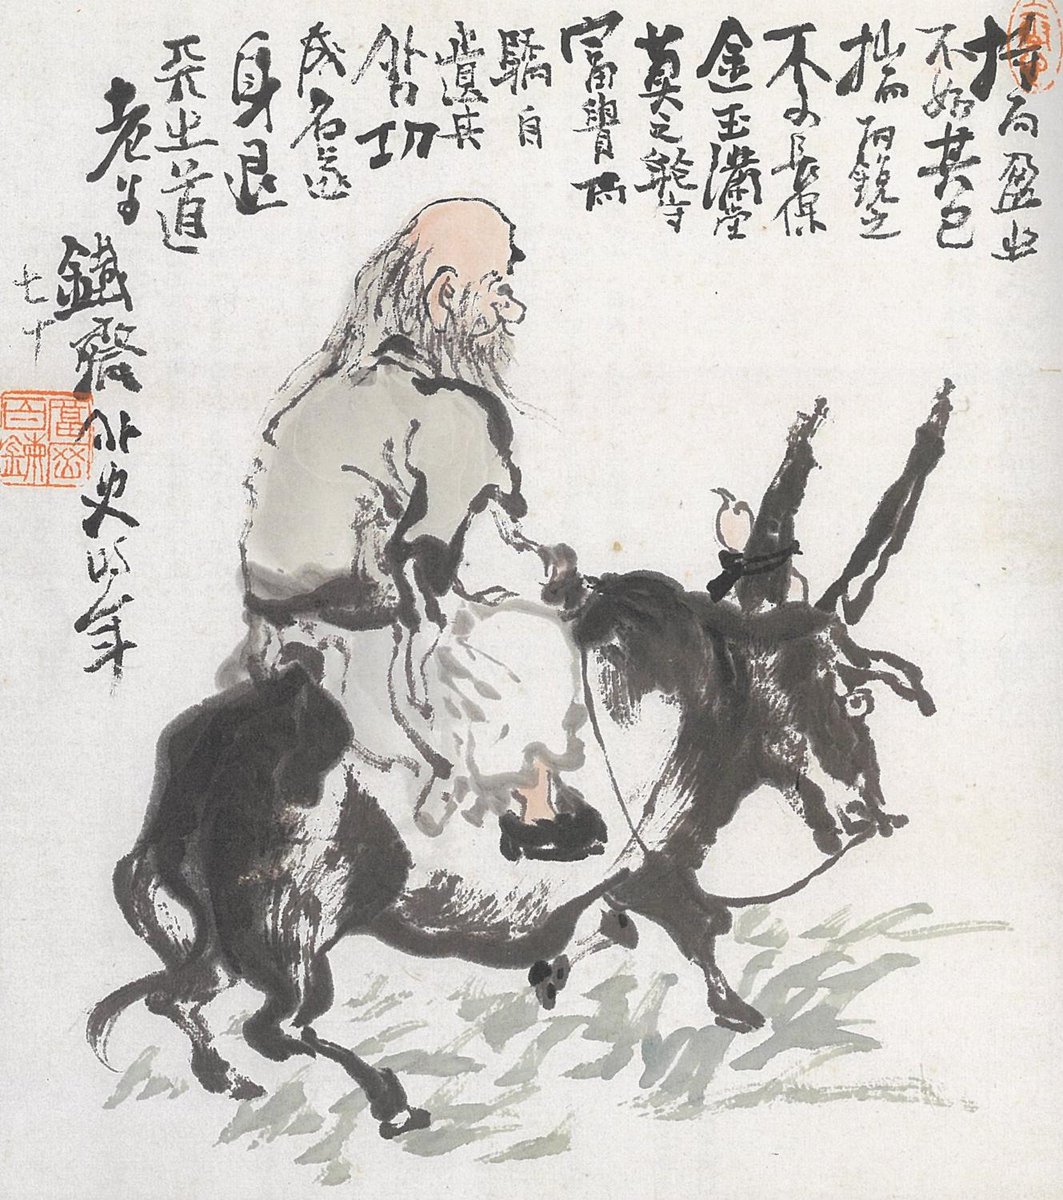 持而盈之
不如其已
揣而鋭之
不可長保
金玉滿堂
莫之能守
富貴而
驕自
遺其
咎功
成名遂
身退
天之道
老子
鐵齋外史時年
七十
富岡百鍊